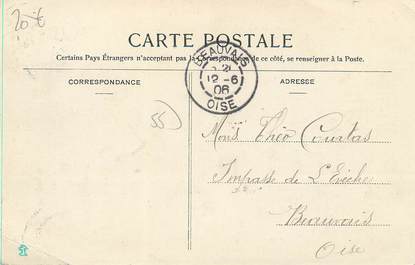 20 €
CARTE POSTALE
Certains Pays Étrangers n'acceptant pas la Correspondance de ce côté, se renseigner à la Poste.
BEAUVAIS
12 - 6
06
OISE
CORRESPONDANCE
ADRESSE
55
Mons Théo Courtas
Impasse de L'Evêché
Beauvais
Oise